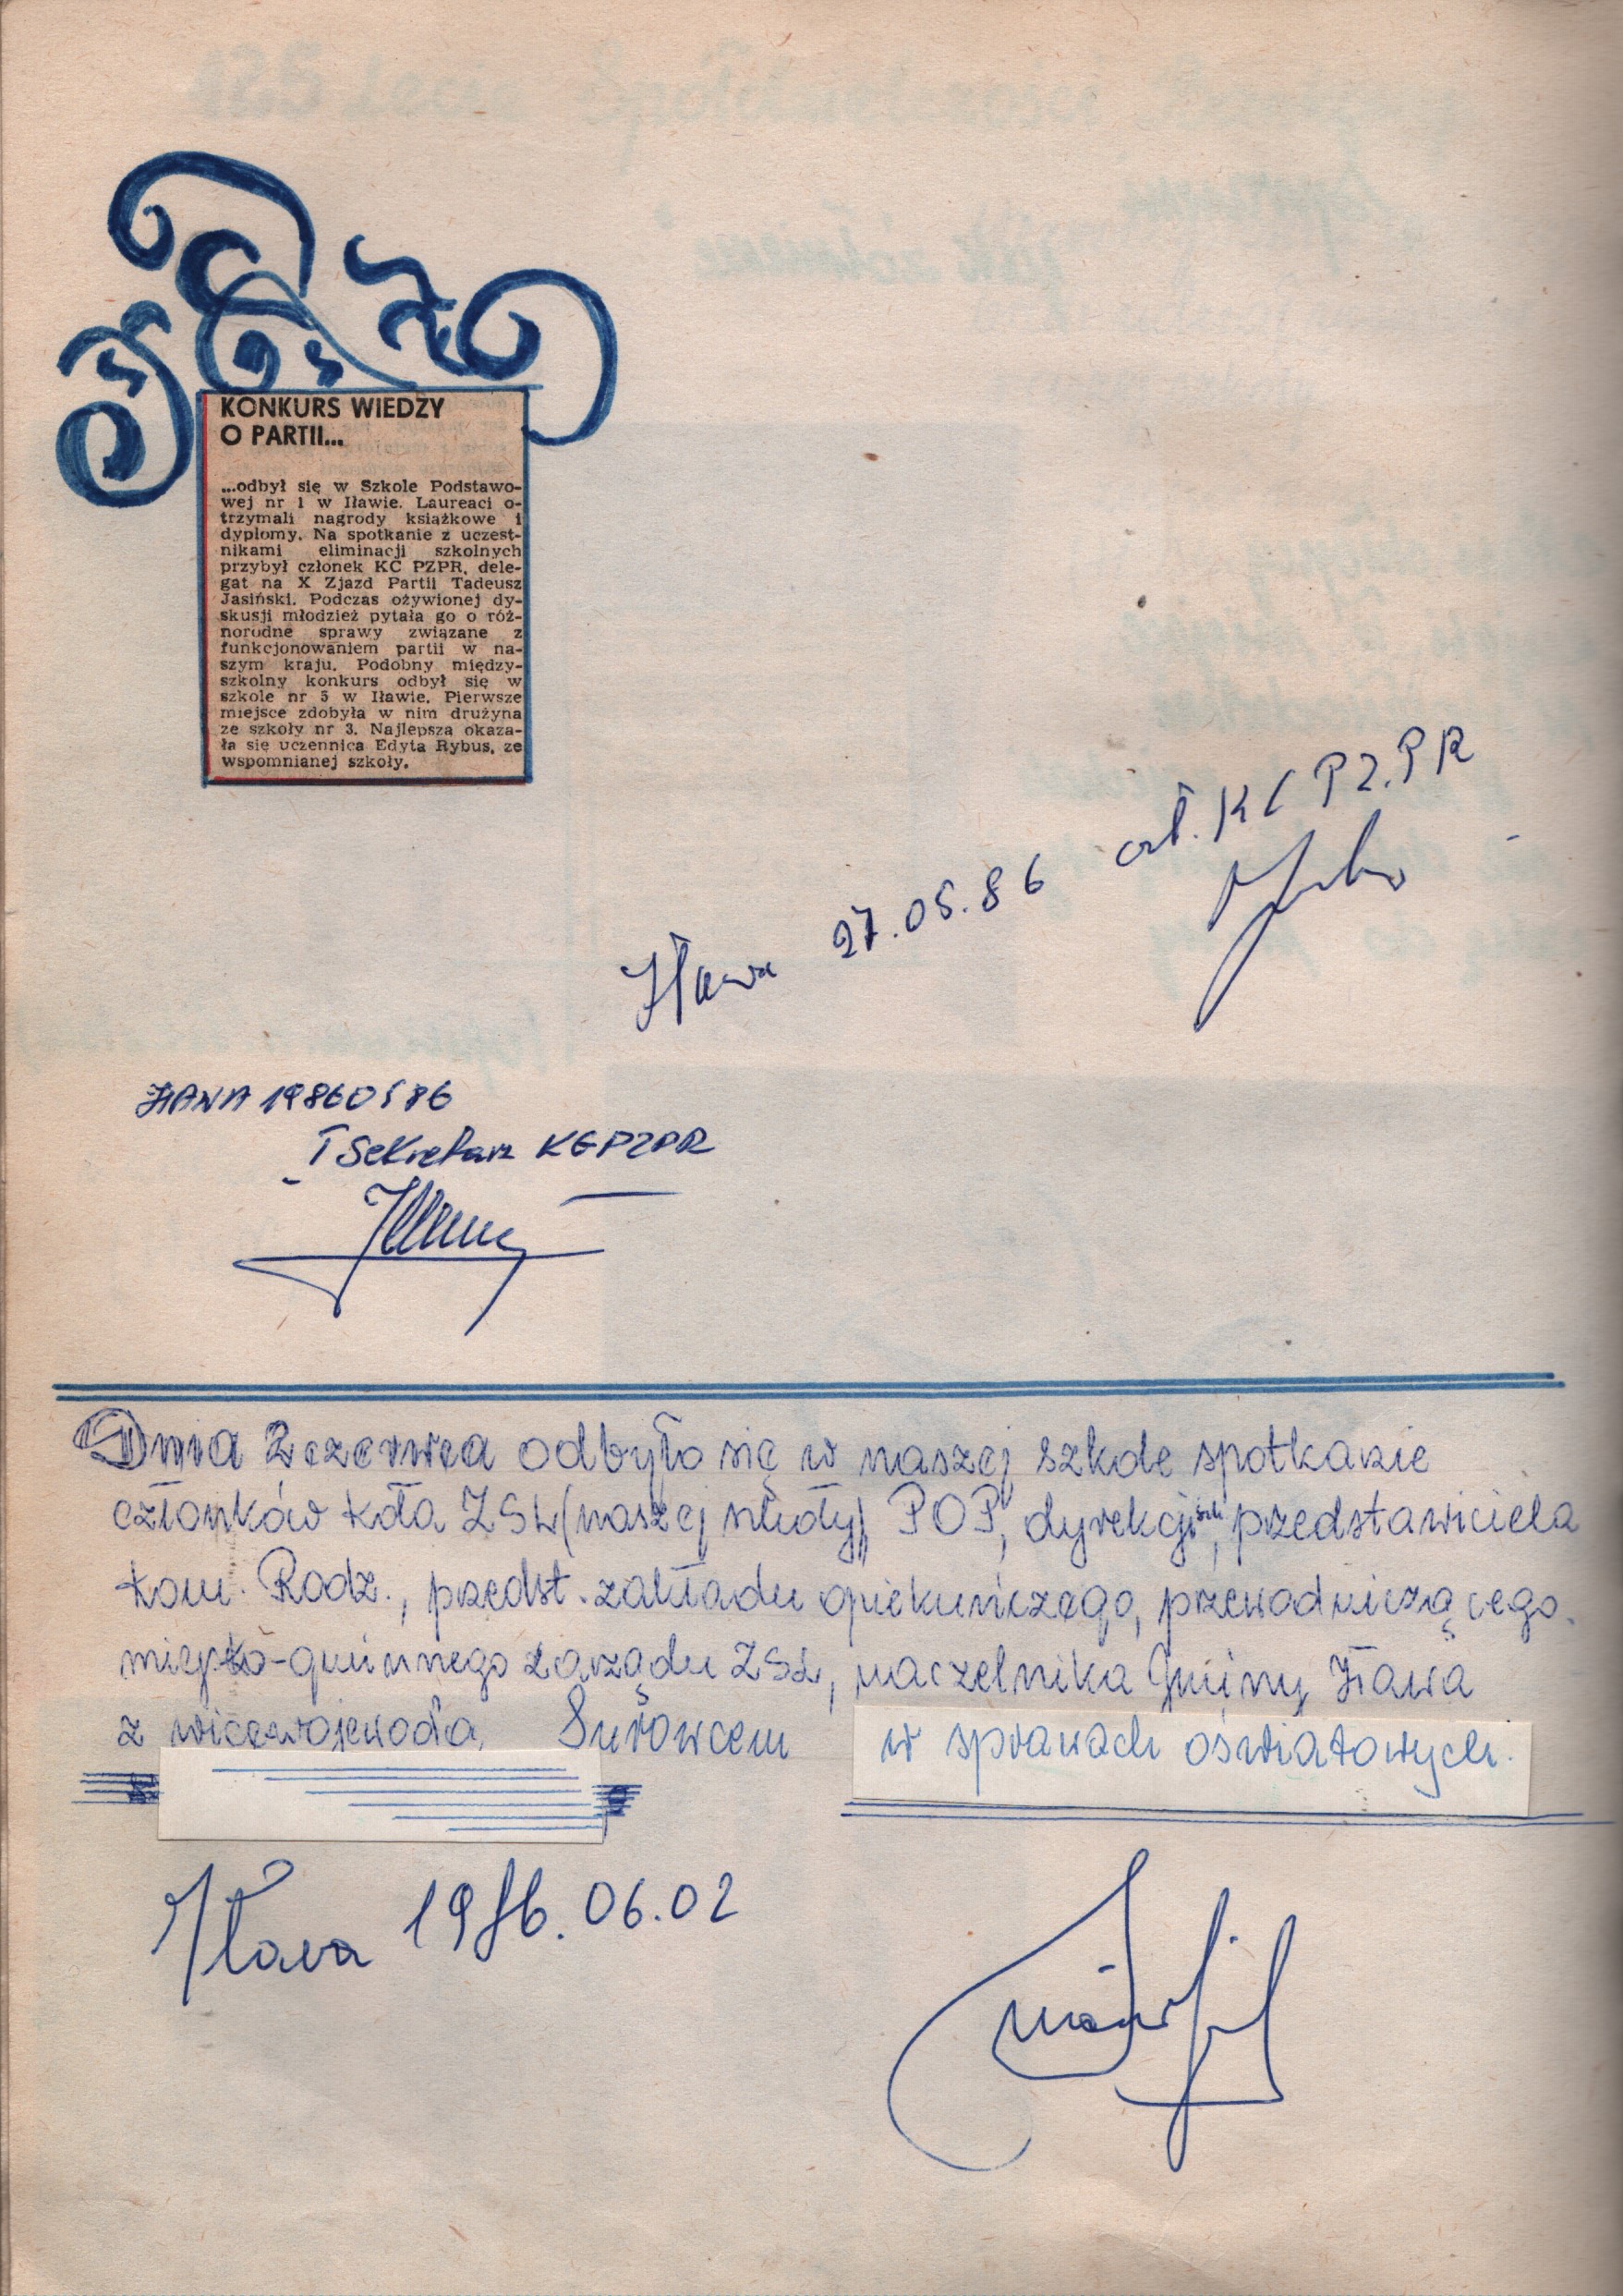 KONKURS WIEDZY
O PARTII...
...odbył się w Szkole Podstawo-
wej nr 1 w Iławie. Laureaci o-
trzymali nagrody książkowe i
dyplomy. Na spotkanie z uczest-
nikami eliminacji szkolnych
przybył członek KC PZPR, dele-
gat na X Zjazd Partii Tadeusz
Jasiński. Podczas ożywionej dy-
skusji młodzież pytała go o róż-
norodne sprawy związane z
funkcjonowaniem partii w na-
szym kraju. Podobny między-
szkolny konkurs odbył się w
szkole nr 5 w Iławie. Pierwsze
miejsce zdobyła w nim drużyna
ze szkoły nr 3. Najlepsza okaza-
ła się uczennica Edyta Rybus, ze
wspomnianej szkoły.
czł. KC PZPR
Iława 27.05.86
IŁAWA
I Sekretarz KG PZPR
Dnia 2 czerwca odbyło się w naszej szkole spotkanie
członków koła ZSL (naszej szkoły), POP, dyrekcji szk, przedstawiciela
kom. Rodz., przedst. zakładu opiekuńczego, przewodniczącego
miejsko-gminnego zarządu ZSL, naczelnika Gminy Iława
z wicewojewodą Surowcem w sprawach oświatowych.
Iława 1986.06.02